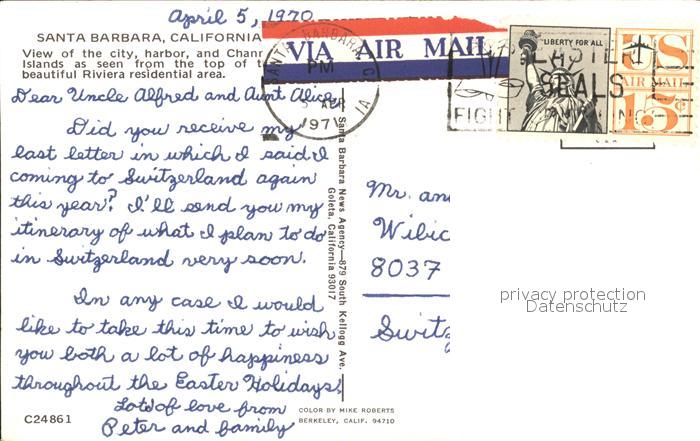 April 5, 1970
SANTA BARBARA, CALIFORNIA
View of the city, harbor, and Chann
Islands as seen from the top of t
beautiful Riviera residential area.
Dear Uncle Alfred and Aunt Alice,
Did you receive my
last letter in which I said I
coming to Switzerland again
this year? I'll send you my
itinerary of what I plan to do
in Switzerland very soon.
In any case I would
like to take this time to wish
you both a lot of happiness
throughout the Easter Holidays.
Lots of love from
Peter and family
C24861
COLOR BY MIKE ROBERTS
BERKELEY, CALIF. 94710
Santa Barbara News Agency—879 South Kellogg Ave.
Goleta, California 93017
VIA AIR MAIL
SANTA BARBARA, CA
PM
5 APR
1971
EASTER
SEALS
FIGHT
LIBERTY FOR ALL
US
AIR MAIL
15¢
Mr. an
Wibic
8037
Switz
privacy protection
Datenschutz